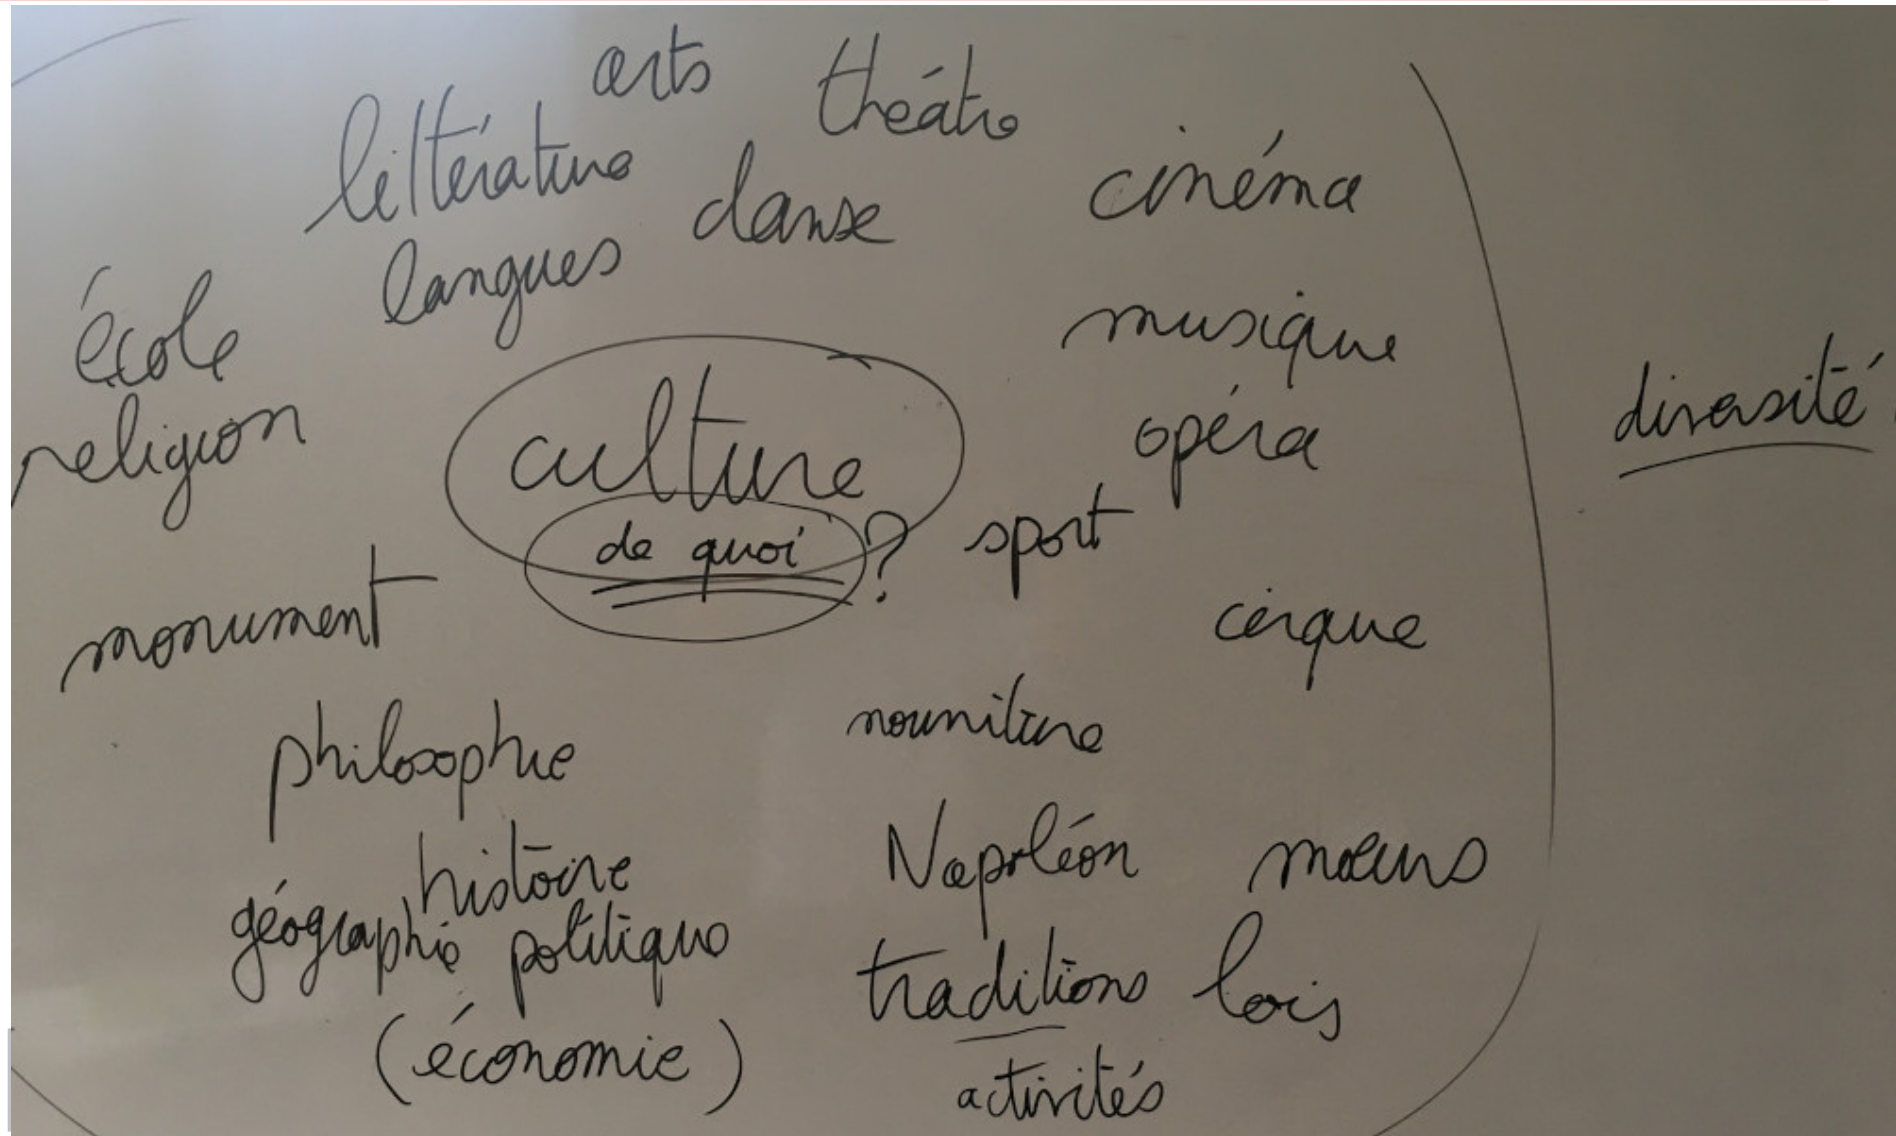 arts
théâtre
littérature
danse
cinéma
langues
école
musique
religion
culture
opéra
diversité
de quoi ?
sport
monument
cirque
philosophie
nourriture
histoire
Napoléon
mœurs
géographie
politique
traditions
lois
(économie)
activités